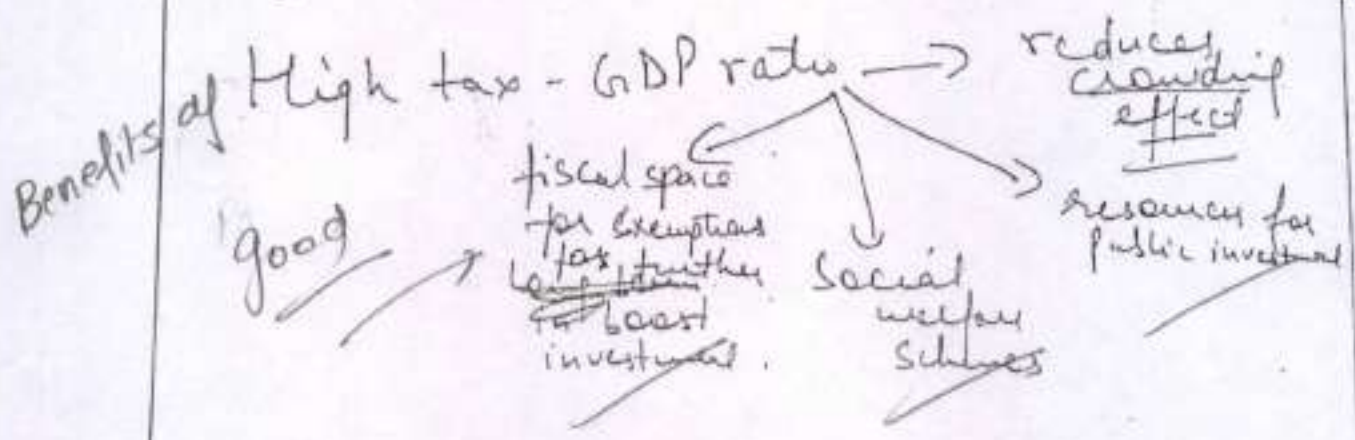 Benefits of High tax - GDP ratio
reduces
crowding
effect
good
fiscal space
for exemptions
for further
to boost
investment.
Social
welfare
Schemes
resources for
public investment